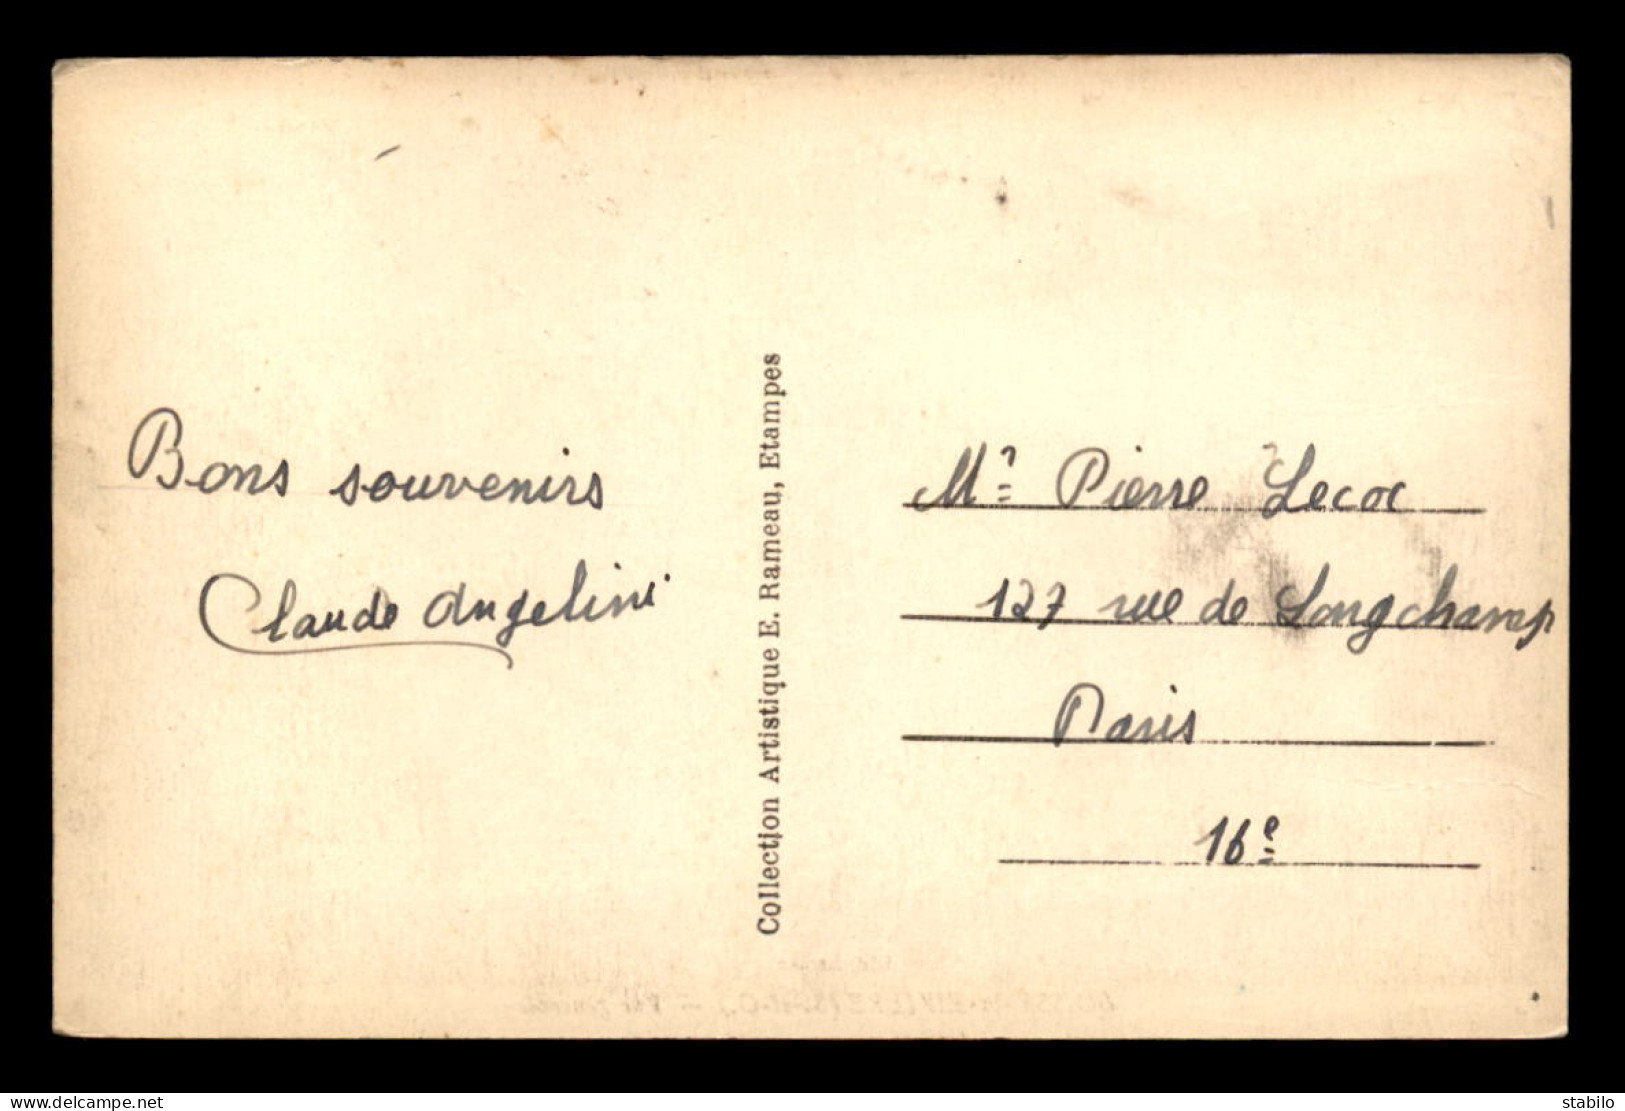 Bons souvenirs
Claude Angelini
Collection Artistique E. Rameau, Etampes
Mr Pierre Lecoc
127 rue de Longchamp
Paris
16e
delcampe.net
stabilo